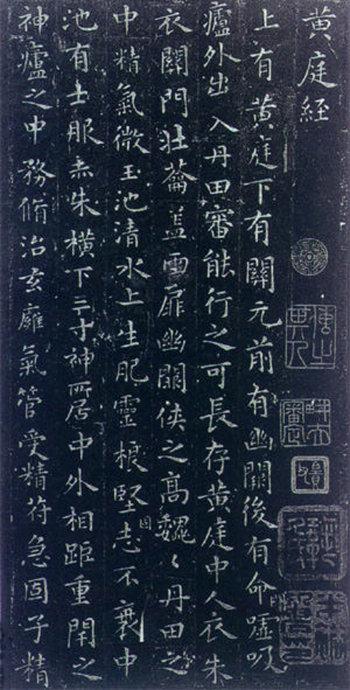 黃庭經
上有黃庭下有關元前有幽闕後有命噓吸
廬外出入丹田審能行之可長存黃庭中人衣朱
衣關門壯蘥蓋兩扉幽闕俠之高魏〻丹田之
中精氣微玉池清水上生肥靈根堅固志不衰中
池有士服赤朱橫下三寸神所居中外相距重閇之
神廬之中務脩治玄廱氣管受精符急固子精